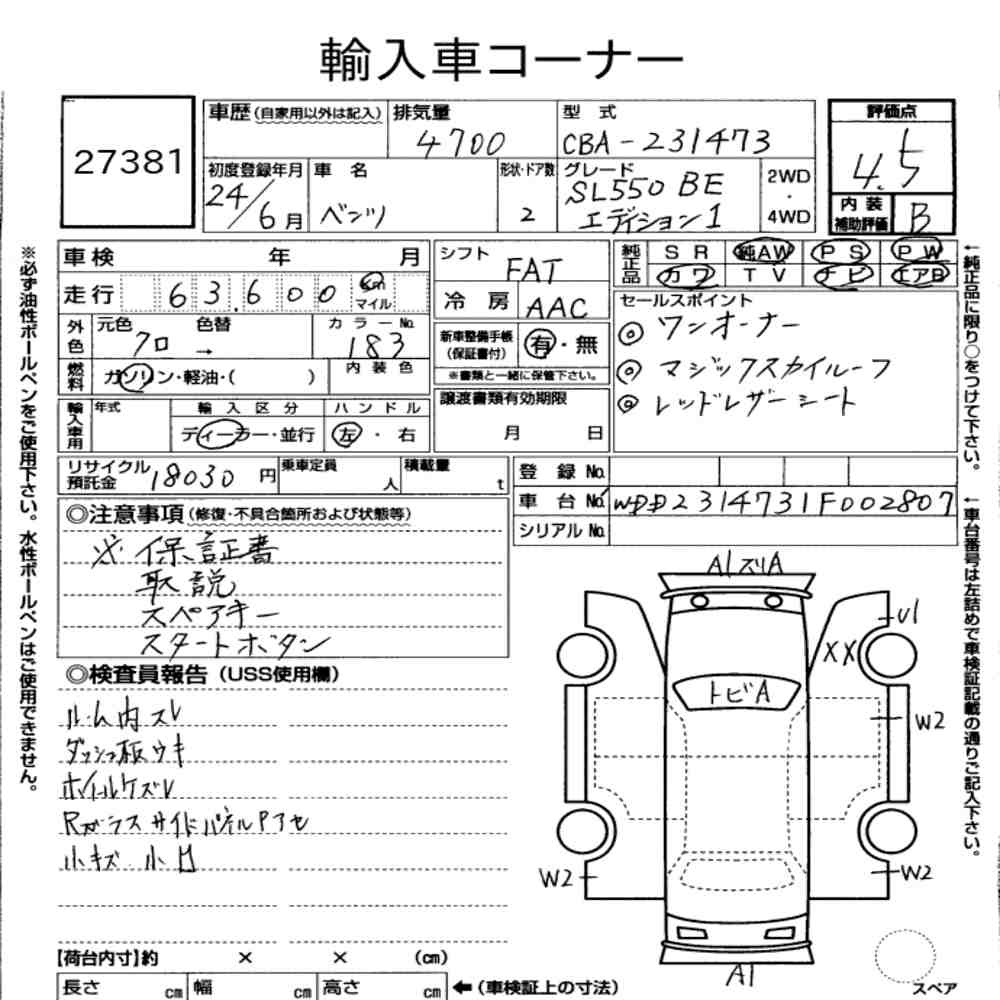 輸入車コーナー
27381
車歴(自家用以外は記入)
排気量
4700
型式
CBA-231473
評価点
4.5
初度登録年月
24/6月
車名
ベンツ
形状・ドア数
2
グレード
SL550 BE
エディション1
2WD
・
4WD
内装
補助評価
B
車検 年 月
走行 63,600 Km
マイル
外色
元色 色替
クロ →
カラーNo.
183
燃料
ガソリン・軽油・( )
内装色
輸入車用
年式
輸入区分
ディーラー・並行
ハンドル
左・右
シフト
FAT
冷房
AAC
新車整備手帳
(保証書付)
有・無
※書類と一緒に保管下さい。
譲渡書類有効期限
月 日
純正品
SR 純AW PS PW
カワ TV ナビ エアB
セールスポイント
◎ ワンオーナー
◎ マジックスカイルーフ
◎ レッドレザーシート
リサイクル
預託金
18030 円
乗車定員
人
積載量
t
登録No.
車台No. WDD2314731F002807
シリアルNo.
◎注意事項(修復・不具合箇所および状態等)
※ 保証書
取説
スペアキー
スタートボタン
◎検査員報告(USS使用欄)
ルーム内スレ
ダッシュ板ウキ
ホイルケズレ
Rガラスサイドパネル
小キズ 小凹
A1 ズリA
U1
XX
トビA
W2
W2
W2
A1
スペア
【荷台内寸】約 × × (cm)
長さ cm 幅 cm 高さ cm ←(車検証上の寸法)
※必ず油性ボールペンをご使用下さい。水性ボールペンはご使用できません。
←純正品に限り○をつけて下さい。
←車台番号は左詰めで車検証記載の通りご記入下さい。